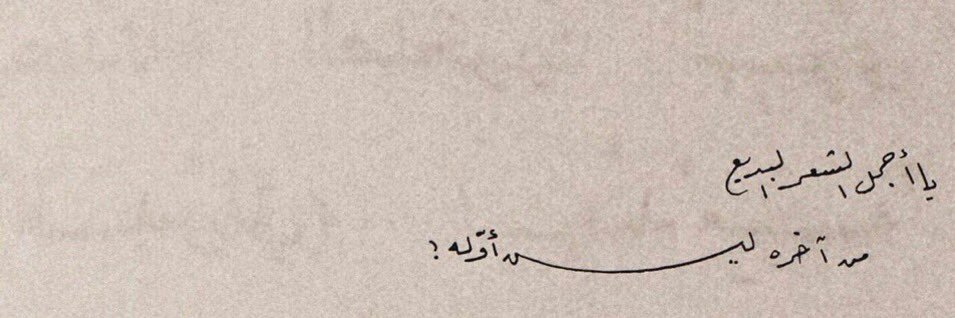 يا أجمل الشعر البديع
من آخره ليس أوّله ؛